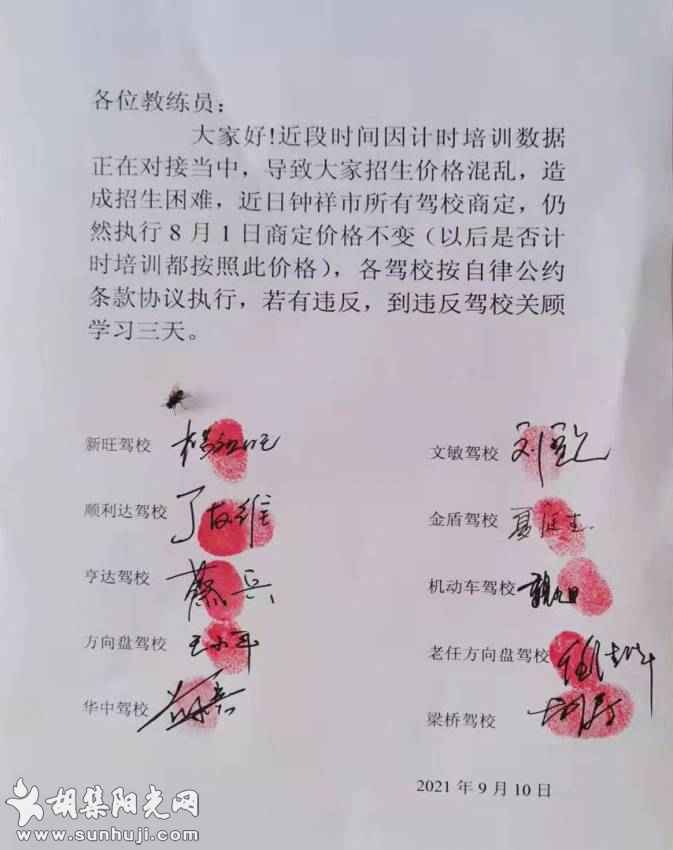 各位教练员：
大家好!近段时间因计时培训数据
正在对接当中，导致大家招生价格混乱，造
成招生困难，近日钟祥市所有驾校商定，仍
然执行 8 月 1 日商定价格不变（以后是否计
时培训都按照此价格），各驾校按自律公约
条款协议执行，若有违反，到违反驾校关顾
学习三天。
新旺驾校
文敏驾校
顺利达驾校
金盾驾校
亨达驾校 蔡兵
机动车驾校
方向盘驾校
老任方向盘驾校
华中驾校
梁桥驾校
2021 年 9 月 10 日
胡集阳光网
www.sunhuji.com